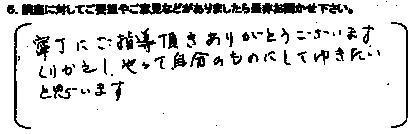 6. 講座に対してご要望やご意見などがありましたら是非お聞かせ下さい。
寧丁にご指導頂きありがとうございます
くりかえし やって自分のものにしてゆきたい
と思います